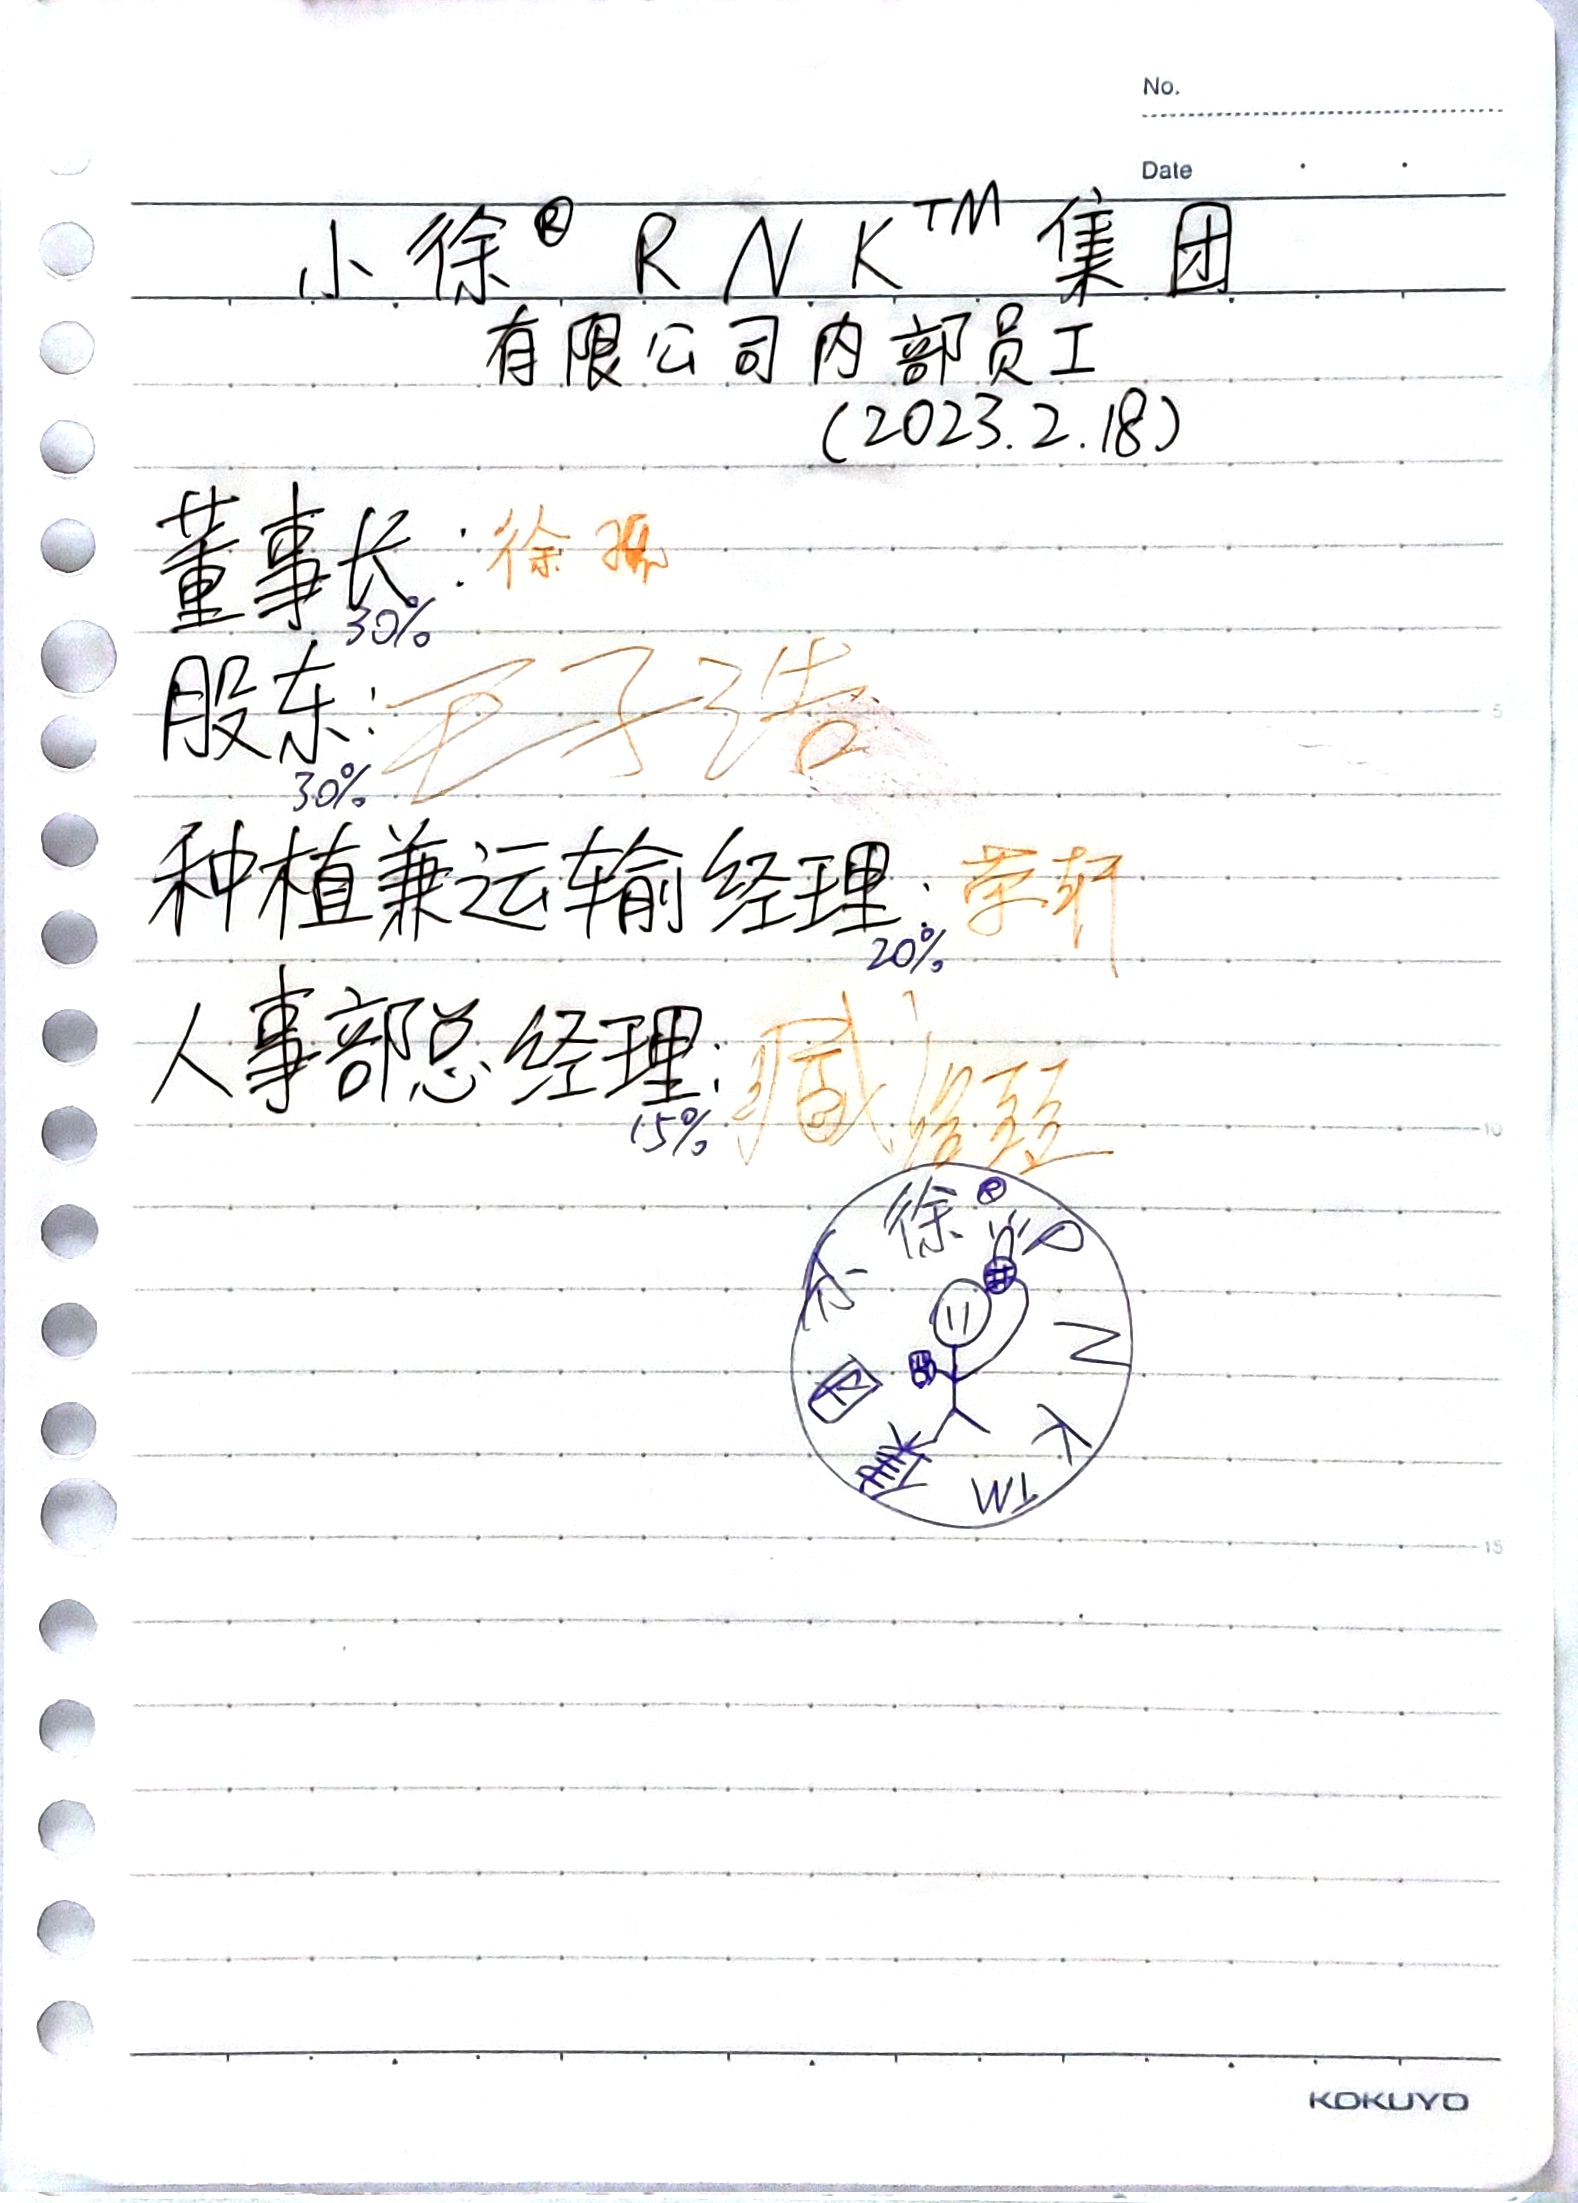 No.
Date
小徐® RNK™集团
有限公司内部员工
(2023.2.18)
董事长：徐
30%
股东：王子浩
30%
种植兼运输经理：荣轩
20%
人事部总经理：臧
15%
小徐®RNKTM集团
5
10
15
KOKUYO